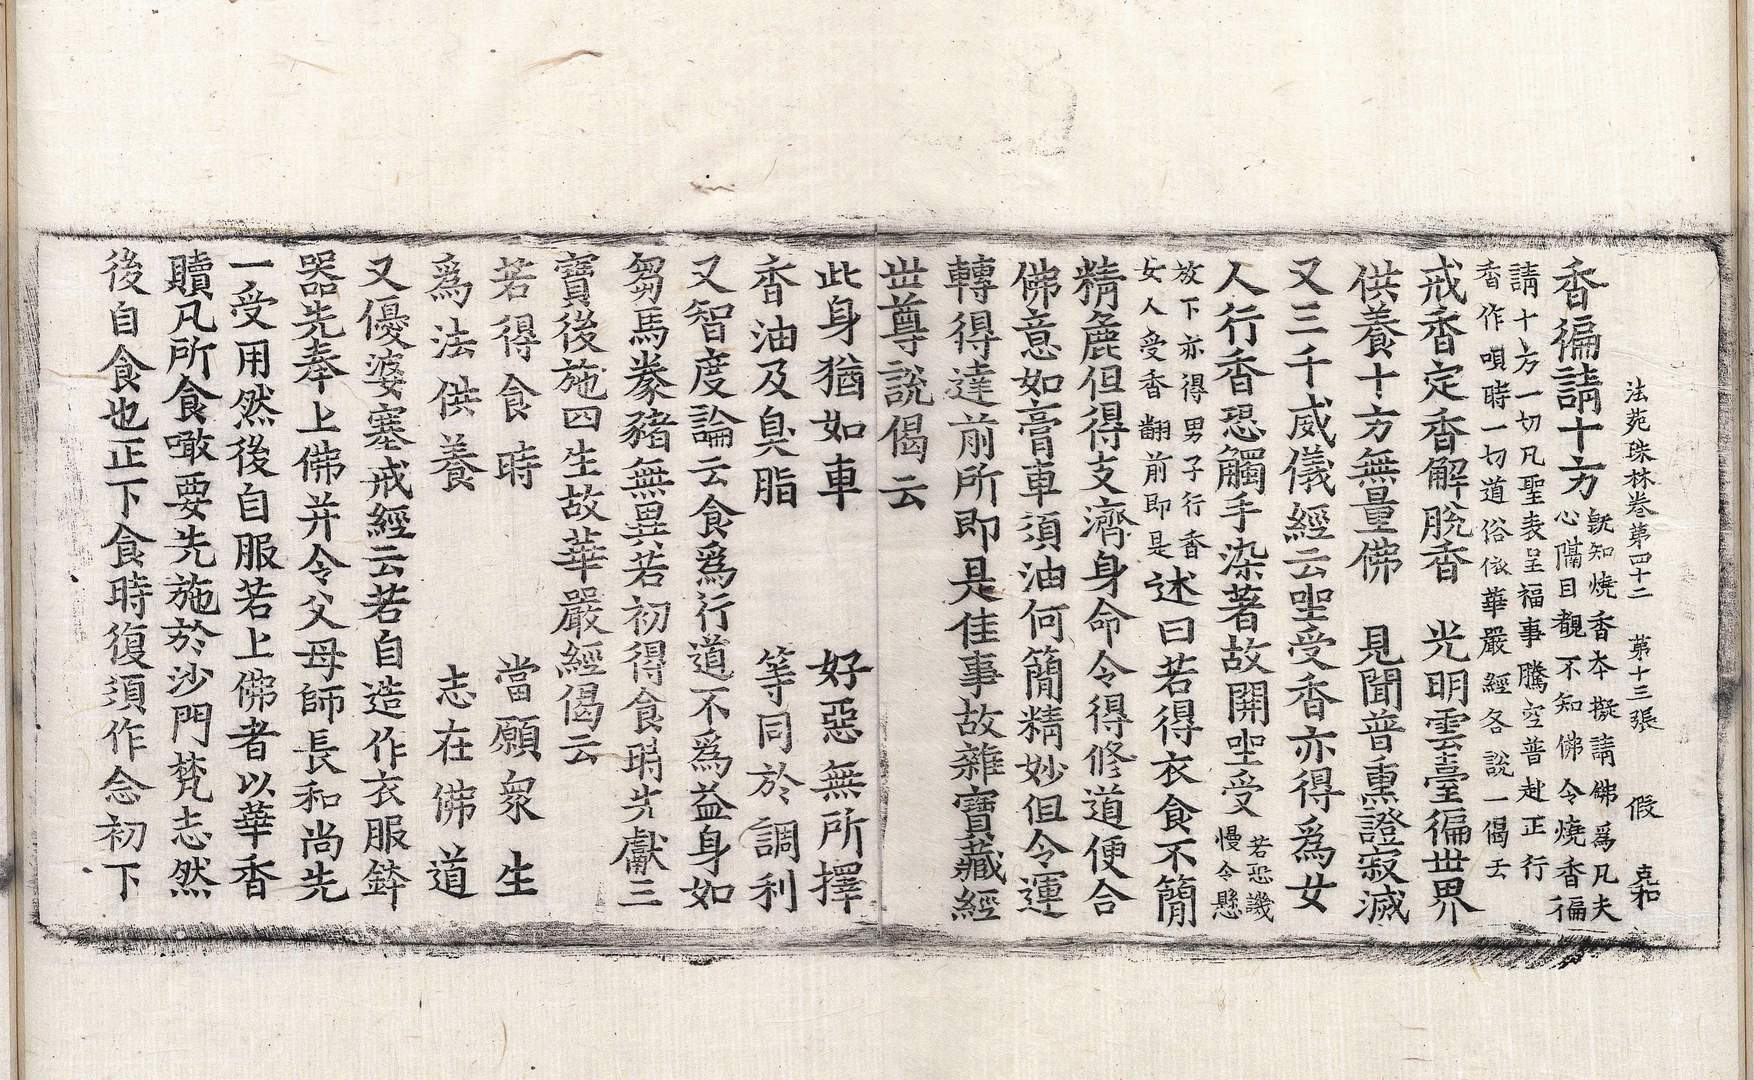 法苑珠林卷第四十二 第十三張 假 克和
香徧請十方既知燒香本擬請佛爲凡夫
心隔目覩不知佛令燒香徧
請十方一切凡聖表呈福事騰空普赴正行
香作唄時一切道俗依華嚴經各說一偈云
戒香定香解脫香 光明雲臺徧世界
供養十方無量佛 見聞普熏證寂滅
又三千威儀經云坐受香亦得爲女
人行香恐觸手染著故開坐受若恐譏
慢令懸
放下亦得男子行香
女人受香翻前即是述曰若得衣食不簡
精麁但得支濟身命令得修道便合
佛意如膏車須油何簡精妙但令運
轉得達前所即是佳事故雜寶藏經
世尊說偈云
此身猶如車 好惡無所擇
香油及臭脂 等同於調利
又智度論云食爲行道不爲益身如
芻馬豢豬無異若初得食時先獻三
寶後施四生故華嚴經偈云
若得食時 當願衆生
爲法供養 志在佛道
又優婆塞戒經云若自造作衣服鉢
器先奉上佛并令父母師長和尚先
一受用然後自服若上佛者以華香
贖凡所食噉要先施於沙門梵志然
後自食也正下食時復須作念初下